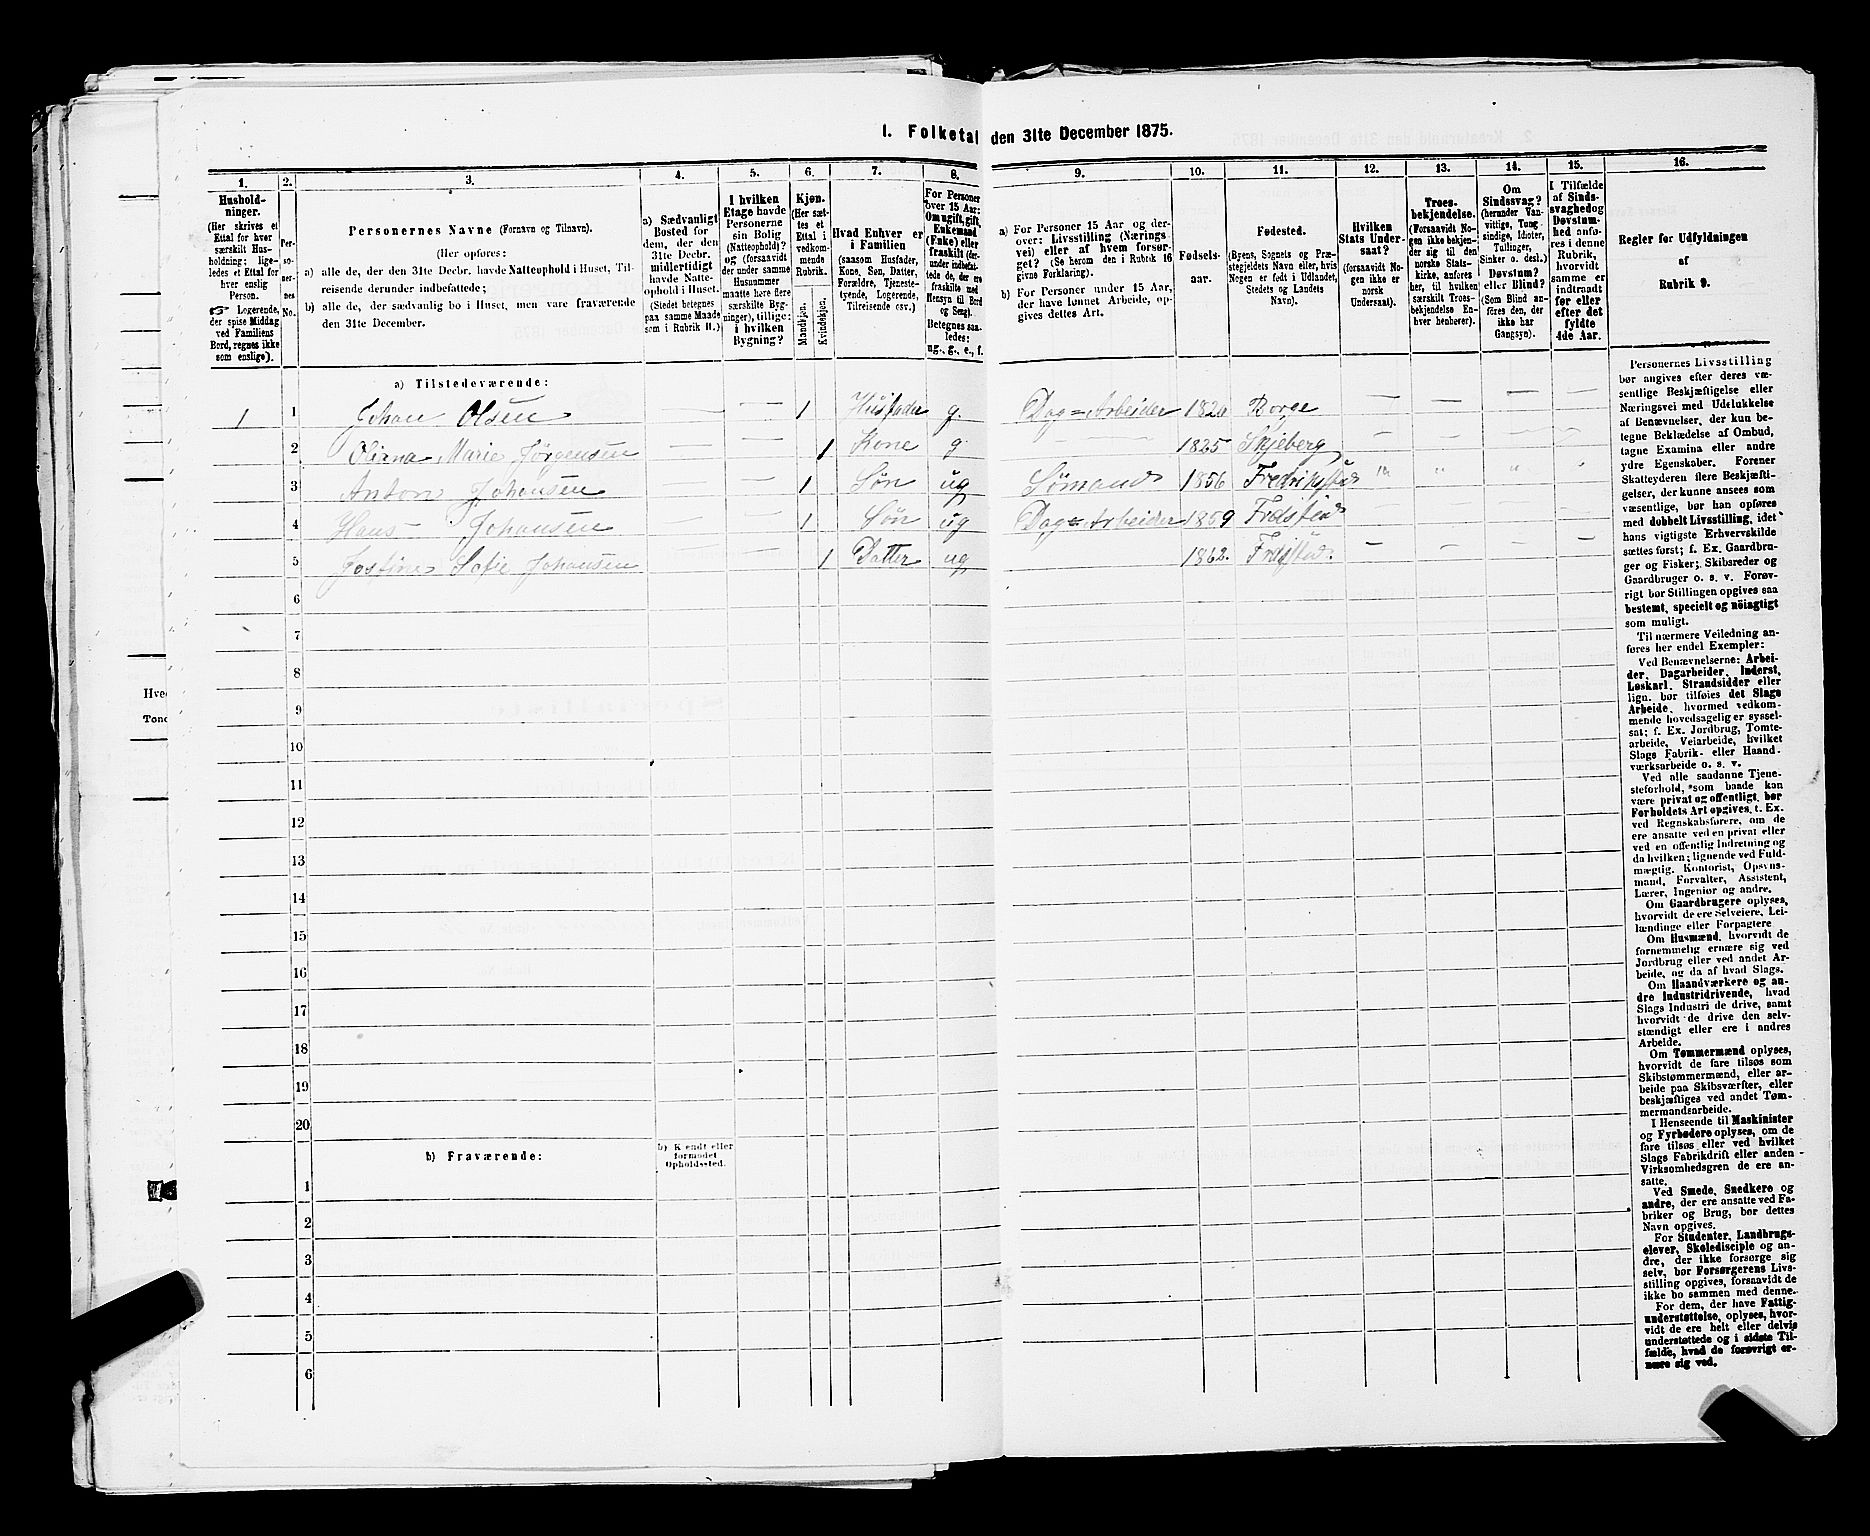 1. Folketal den 31te December 1875.
1. 2. 3. 4. 5. 6. 7. 8. 9. 10. 11. 12. 13. 14. 15. 16.
Hushold-
ninger.
(Her skrives et
Ettal for hver
særskilt Hus-
holdning; lige-
ledes et Ettal for
hver enslig
Person.
☞ Logerende,
der spise Middag
ved Familiens
Bord, regnes ikke
som enslige).
Per-
so-
ner-
nes
No.
Personernes Navne (Fornavn og Tilnavn).
(Her opføres:
a) alle de, der den 31te Decbr. havde Natteophold i Huset, Til-
reisende derunder indbefattede;
b) alle de, der sædvanlig bo i Huset, men vare fraværende
den 31te December.
a) Sædvanligt
Bosted for
dem, der den
31te Decbr.
midlertidigt
havde Natte-
ophold i Huset.
(Stedet betegnes
paa samme Maade
som i Rubrik 11.)
I hvilken
Etage havde
Personerne
sin Bolig
(Natteophold)?
og (forsaavidt
der under samme
Husnummer
maatte høre flere
særskilte Byg-
ninger), tillige:
i hvilken
Bygning?
Kjøn.
(Her sæt-
tes et
Ettal i
vedkom-
mende
Rubrik.
Mandkjøn.
Kvindekjøn.
Hvad Enhver er
i Familien
(saasom Husfader,
Kone, Søn, Datter,
Forældre, Tjeneste-
tyende, Logerende,
Tilreisende osv.)
For Personer
over 15 Aar:
Om ugift, gift,
Enkemand
(Enke) eller
fraskilt (der-
under indbefat-
tede de, der ere
fraskilte med
Hensyn til Bord
og Seng).
Betegnes saa-
ledes:
ug., g., e., f.
a) For Personer 15 Aar og der-
over: Livsstilling (Nærings-
vei) eller af hvem forsør-
get? (Se herom den i Rubrik 16
givne Forklaring).
b) For Personer under 15 Aar,
der have lønnet Arbeide, op-
gives dettes Art.
Fødsels-
aar.
Fødested.
(Byens, Sognets og Præ-
stegjeldets Navn eller, hvis
Nogen er født i Udlandet,
Stedets og Landets
Navn).
Hvilken
Stats Under-
saat?
(forsaavidt No-
gen ikke er
norsk
Undersaat).
Troes-
bekjendelse.
(Forsaavidt No-
gen ikke bekjen-
der sig til den
norske Stats-
kirke, anføres
her, til hvilken
særskilt Troes-
bekjendelse En-
hver henhører).
Om
Sindssvag?
(herunder Van-
vittige, Tung-
sindige, Idioter,
Tullinger,
Sinker o. desl.).
Døvstum?
eller Blind?
(Som Blind an-
føres den, der
ikke har
Gangsyn).
I Tilfælde
af Sinds-
svaghed og
Døvstum-
hed anfø-
res i denne
Rubrik,
hvorvidt
samme er
indtraadt
før eller
efter det
fyldte
4de Aar.
Regler for Udfyldningen
af
Rubrik 9.
a) Tilstedeværende:
1 1 Johan Olsen — — 1 Husfader g. Dag=Arbeider Borge — — — —
2 Marie Jørgensen — — 1 Kone g. 1825 Skjeberg — — — —
3 Anton Johansen — — 1 Søn ug Sømand 1856 Fredrikstad " " " "
4 Hans Johansen — — 1 Søn ug Dag=Arbeider 1859 Fredstad — — — —
5 Josefine Sofie Johansen — — 1 Datter ug 1862. Fredstad. — — — —
6
7
8
9
10
11
12
13
14
15
16
17
18
19
20
b) Fraværende:
b) Kjendt eller
formodet
Opholdssted.
1
2
3
4
5
6
Personernes Livsstilling
bør angives efter deres væ-
sentlige Beskjæftigelse eller
Næringsvei med Udelukkelse
af Benævnelser, der kun be-
tegne Beklædelse af Ombud,
tagne Examina eller andre
ydre Egenskaber. Forener
Skatteyderen flere Beskjæfti-
gelser, der kunne ansees som
væsentlige, bør han opføres
med dobbelt Livsstilling, idet
hans vigtigste Erhvervskilde
sættes først; f. Ex. Gaardbru-
ger og Fisker; Skibsreder og
Gaardbruger o. s. v. Forøv-
rigt bør Stillingen opgives saa
bestemt, specielt og nøiagtigt
som muligt.
Til nærmere Veiledning an-
føres her endel Exempler:
Ved Benævnelserne: Arbei-
der, Dagarbeider, Inderst,
Løskarl, Strandsidder eller
lign. bør tilføies det Slags
Arbeide, hvormed vedkom-
mende hovedsagelig er syssel-
sat; f. Ex. Jordbrug, Tomte-
arbeide, Veiarbeide, hvilket
Slags Fabrik- eller Haand-
værksarbeide o. s. v.
Ved alle saadanne Tjene-
steforhold, som baade kan
være privat og offentligt, bør
Forholdets Art opgives, t. Ex.
ved Regnskabsførere, om de
ere ansatte ved en privat eller
ved en offentlig Indretning og
da hvilken; lignende ved Fuld-
mægtig, Kontorist, Opsyns-
mand, Forvalter, Assistent,
Lærer, Ingeniør og andre.
Om Gaardbrugere oplyses,
hvorvidt de ere Selveiere, Lei-
lændinge eller Forpagtere
Om Husmænd, hvorvidt de
fornemmelig ernære sig ved
Jordbrug eller ved andet Ar-
beide, og da af hvad Slags.
Om Haandværkere og an-
dre Industridrivende, hvad
Slags Industri de drive, samt
hvorvidt de drive den selv-
stændigt eller ere i andres
Arbeide.
Om Tømmermænd oplyses,
hvorvidt de fare tilsøs som
Skibstømmermænd, eller ar-
beide paa Skibsværfter, eller
beskjæftiges ved andet Tøm-
mermandsarbeide.
I Henseende til Maskinister
og Fyrbødere oplyses, om de
fare tilsøs eller ved hvilket
Slags Fabrikdrift eller anden
Virksomhedsgren de ere an-
satte.
Ved Smede, Snedkere og
andre, der ere ansatte ved Fa-
briker og Brug, bør dettes
Navn opgives.
For Studenter, Landbrugs-
elever, Skoledisciple og an-
dre, der ikke forsørge sig
selv, bør Forsørgerens Livs-
stilling opgives, forsaavidt de
ikke bo sammen med denne.
For dem, der have Fattig-
understøttelse, oplyses, hvor-
vidt de ere helt eller delvis
understøttede og i sidste Til-
fælde, hvad de forøvrigt er-
nære sig ved.
Hve
Tønd